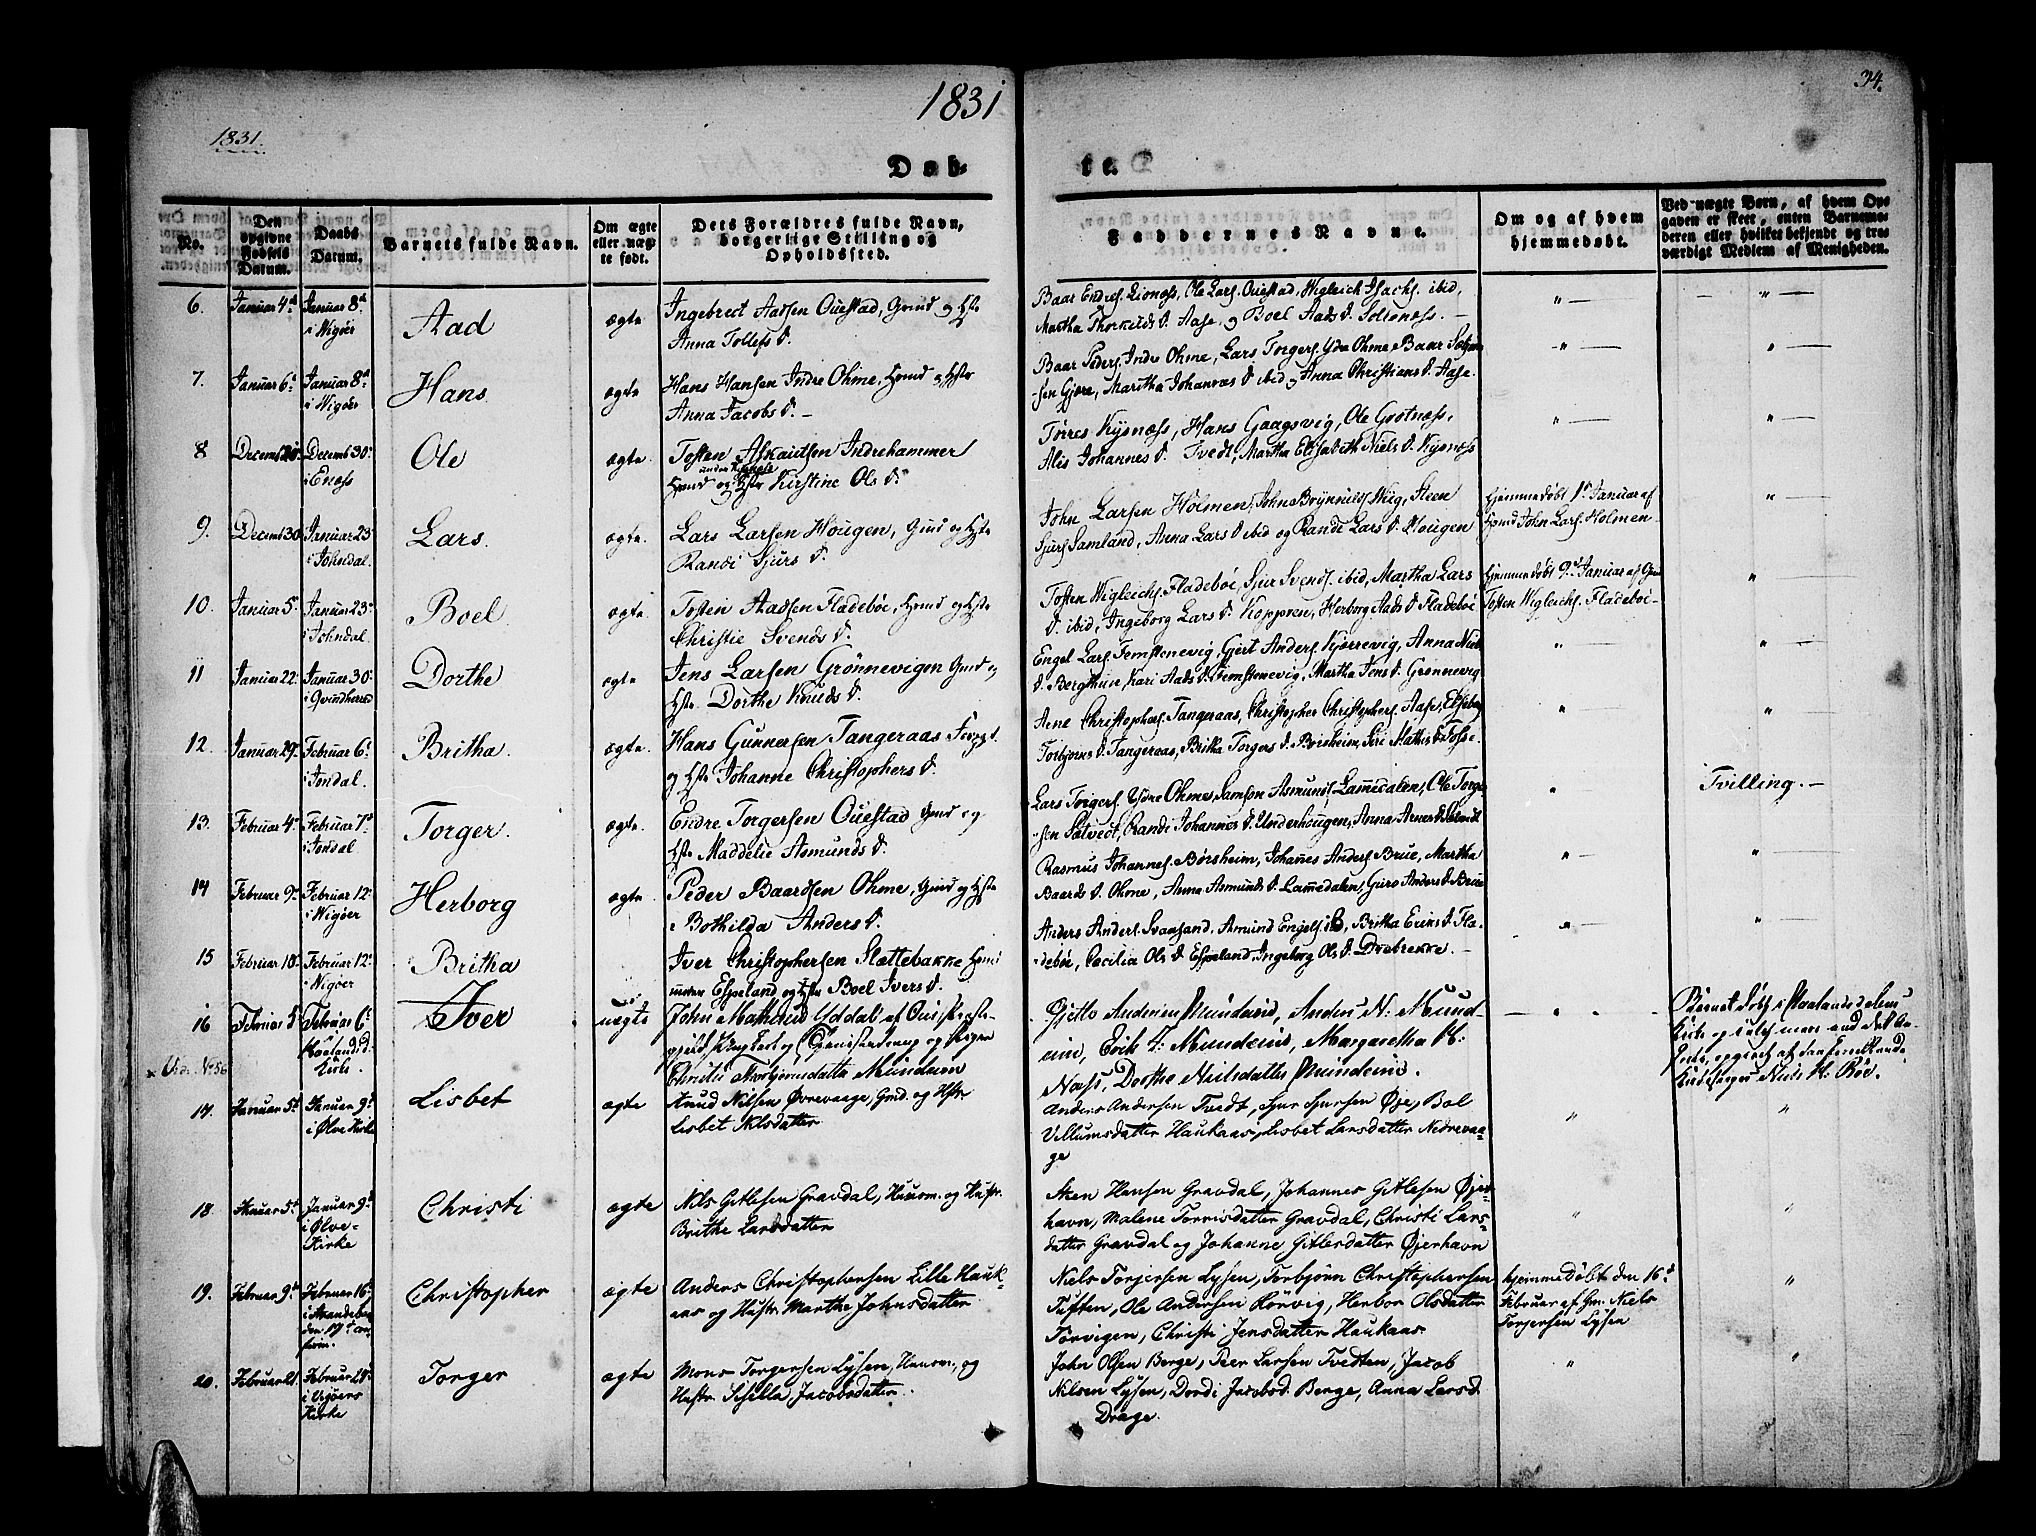 1831
34.
1831.
Døb-
te.
No.
Den opgivne Fødsels Datum.
Daabs Datum.
Barnets fulde Navn.
Om ægte eller uægte født.
Dets Forældres fulde Navn, borgerlige Stilling og Opholdssted.
Faddernes Navne.
Om og af hvem hjemmedøbt.
Ved uægte Børn, af hvem Opgaven er skeet, enten Barnemoderen eller hvilket bekjendt og troværdigt Medlem af Menigheden.
6. Januar 4d Januar 8d i Wigøer
Aad
ægte
Ingebrect Aadsen Ouestad, Gmd og Hstr
Anna Tollefs D.
Baar Endres. Lionæs, Ole Lars. Ouestad, Wigleich Isachs. ibid,
Martha Thorkilds D. Aase, og Boel Aads D. Soltenæs.
7. Januar 6 Januar 8d i Wigøer
Hans
ægte
Hans Hansen Indre Ohme, Hmd og Hstr
Anna Jacobs D.
Baar Peders. Indre Ohme, Lars Torgers. Ydre Ohme, Baar
sen Gjøre, Maritha Johannes D. ibid og Anna Christians D. Aase.
8 Decemb Decemb 30 i Enæs
Ole
ægte.
Tosten Askautsen Indrehammer
Hmd og Hstr Kirstine Ols D.
under
Tørres Kysnæss, Hans Gaagsvig, Ole Grotnæss,
Alis Johannes D. Tvedt, Martha Elisabeth Niels D. Kysnæss
9. Decemb 30 Januar 23 i Johndal.
Lars
ægte.
Lars Larsen Hougen, Gmd og Hstr
Randi Sjurs D.
John Larsen Holmen, John Brynnilds. Wig, Steen
Sjurs. Samland, Anna Lars D ibid og Randi Lars D. Hougen
Hjemmedøbt 1d Januar af
Hmd John Lars. Holmen
10. Januar 5 Januar 23 i Johndal.
Boel
ægte
Tosten Aadsen Fladebøe, Hmd og Hstr
Christie Svends D.
Tosten Wigleichs. Fladebøe, Sjur Svends. ibid, Martha Lars
D. ibid, Ingeborg Lars D. Koppren, Herborg Aads D. Fladebøe
Hjemmedøbt 9d Januar af Gmd
Tosten Wigleichs. Fladebøe
11 Januar 22 Januar 30 i Qvindherred
Dorthe
ægte
Jens Larsen Grønnevigen Gmd og
Hstr. Dorthe Knuds D.
Engel Lars. Femstenevig, Gjert Anders. Kjærrevig, Anna Niels
D. Bergthun, Kari Aads D. Femstenevig, Martha Jens D. Grønnevig
12. Januar 29 Februar 6 i Jondal.
Britha.
ægte.
Hans Gunnersen Tangeraas
og Hstr Johanne Christophers D.
Arne Christophers. Tangeraas, Christopher Christophers. Aase,
Torbjørns D. Tangeraas, Britha Torgers D. Børsheim, Siri Mathis D. Tosse.
13. Februar 4 Februar 7d i Jondal
Torger.
ægte.
Endre Torgersen Ouestad Gmd og
Hstr Maddelie Asmunds D.
Lars Torgers. Ydre Ohme, Samson Asmunds. Lammedalen, Ole Torger
sen Sætvedt, Randi Johannes D. Underhougen, Anna Arnes D.
Tvilling.
14 Februar 9 Februar 12 i Wigøer
Herborg
ægte.
Peder Baardsen Ohme, Gmd og Hstr
Bothilda Anders D.
Rasmus Johannes. Børsheim, Johannes Anders. Brue, Martha
Baards D. Ohme, Anna Asmunds D. Lammedalen, Guro Anders D. Brue
15 Februar 10 Februar 12 i Wigøer
Britha
Iver Christophersen Slættebakke
under Espeland og Hstr Boel Ivers D.
Anders Anders. Svansand, Asmund Engels. ibid, Britha Eriks D. Fla-
debøe, Cæcilia Ols D. Espeland, Ingeborg Ols D. Drebrekke.
16 Februar 5 Februar 6 i Haalands. Kirke
Iver
uægte
Iddal af Ous Præste-
gjeld, og Pigen
Christie Torbjørnsdatter Mundeim
Gjetle Andersen Mundeim, Anders N. Mund-
eim, Erik T. Mundeim, Margaretha H.
Næss, Dorthe Nielsdatter Mundeim.
Barnet døbt i Haalandsdalens
Kirke og
opgivet af
Niels H. Bøe.
Vide No 56
17. Januar 5t Januar 9d i Ølve Kirke
Lisbet
ægte
Knud Nilsen Øvrevaage, Gmd. og Hstr
Lisbet Nilsdatter
Anders Andersen Tvedt, Sjur Sjursen Øje, Bol
Villumsdatter Haukaas, Lisbet Larsdatter Nedrevaa-
ge
18. Januar 5t Januar 9d i Ølve-Kirke
Christi
ægte
Nils Gitlesen Gravdal, Huusm. og Hustr.
Brithe Larsdatter
Sten Hansen Gravdal, Johannes Gitlesen Øjer-
havn, Malene Torrisdatter Gravdal, Christi Lars-
datter Gravdal og Johanne Gitlesdatter Øjerhavn
19. Februar 9d Februar 16 i Strandebarm den 17d
Christopher
ægte
Anders Christophersen Lille Hauk-
aas og Hustr. Marthe Johnsdatter
Niels Torjersen Lysen, Torbjørn Christophersen
Tuften, Ole Andersen Rørvig, Herbor Olsdatter
Torvigen, Christi Jensdatter Haukaas
hjemmedøbt den 16d
Februar af Gm. Niels
Torjersen Lysen
20. Februar 21 Februar i Vigøers Kirke
Torger
ægte
Mons Torgersen Lysen, Huusm., og
Hustr. Sisilla Jacobsdatter.
John Olsen Berge, Peer Larsen Tvedten, Jacob
Nilsen Lysen, Dordi Jacobsd. Berge, Anna Larsd.
Drage.